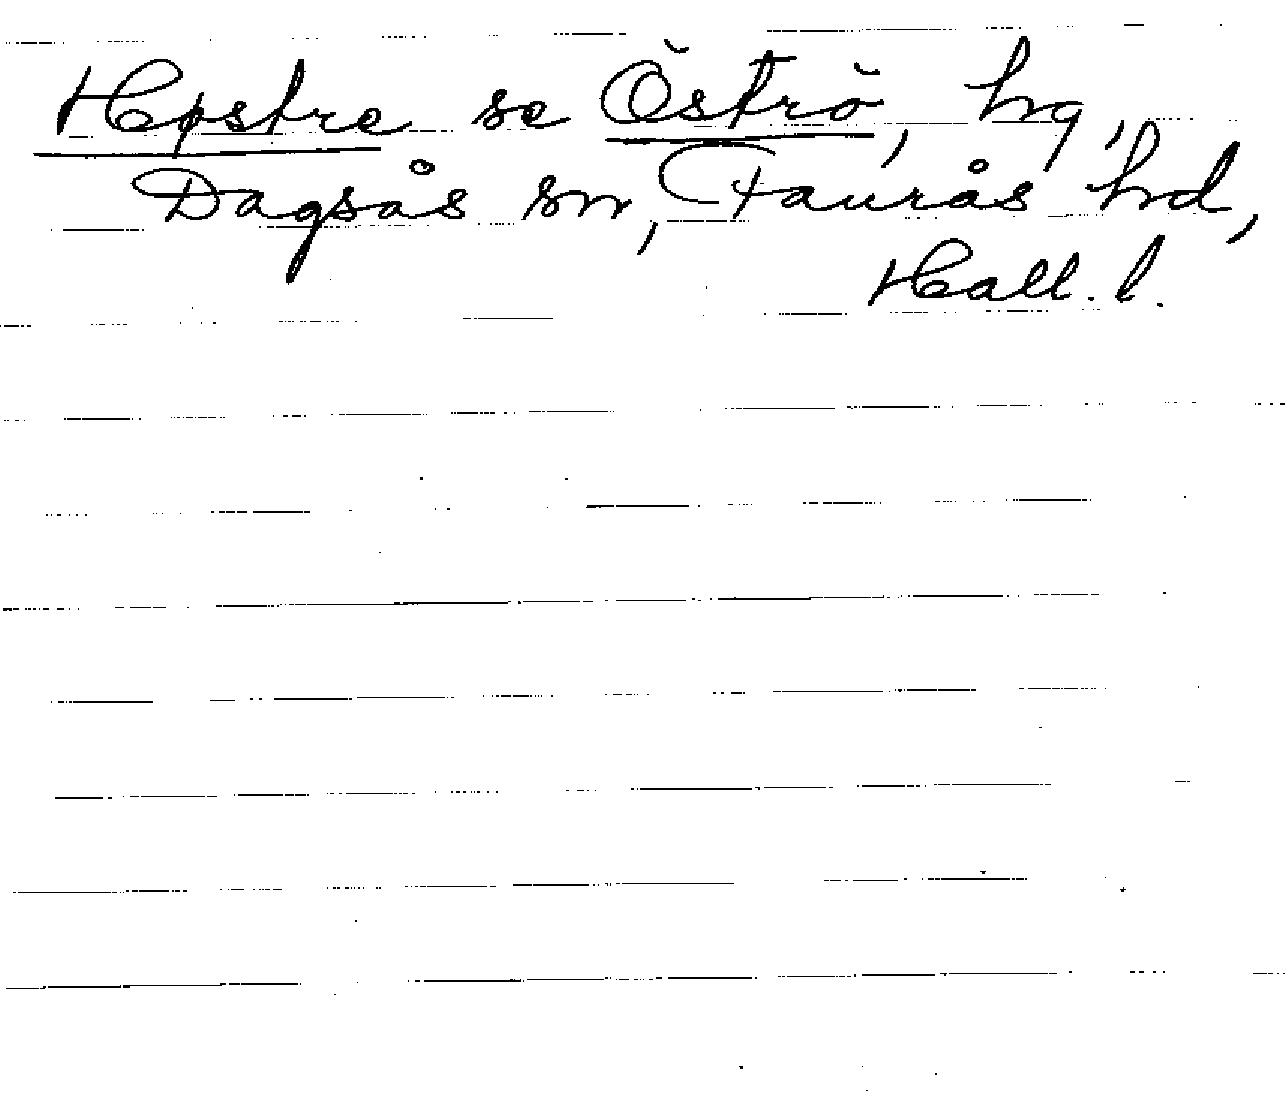 Høstre se Öströ, hg,
Dagsås sn, Faurås hd,
Hall. l.